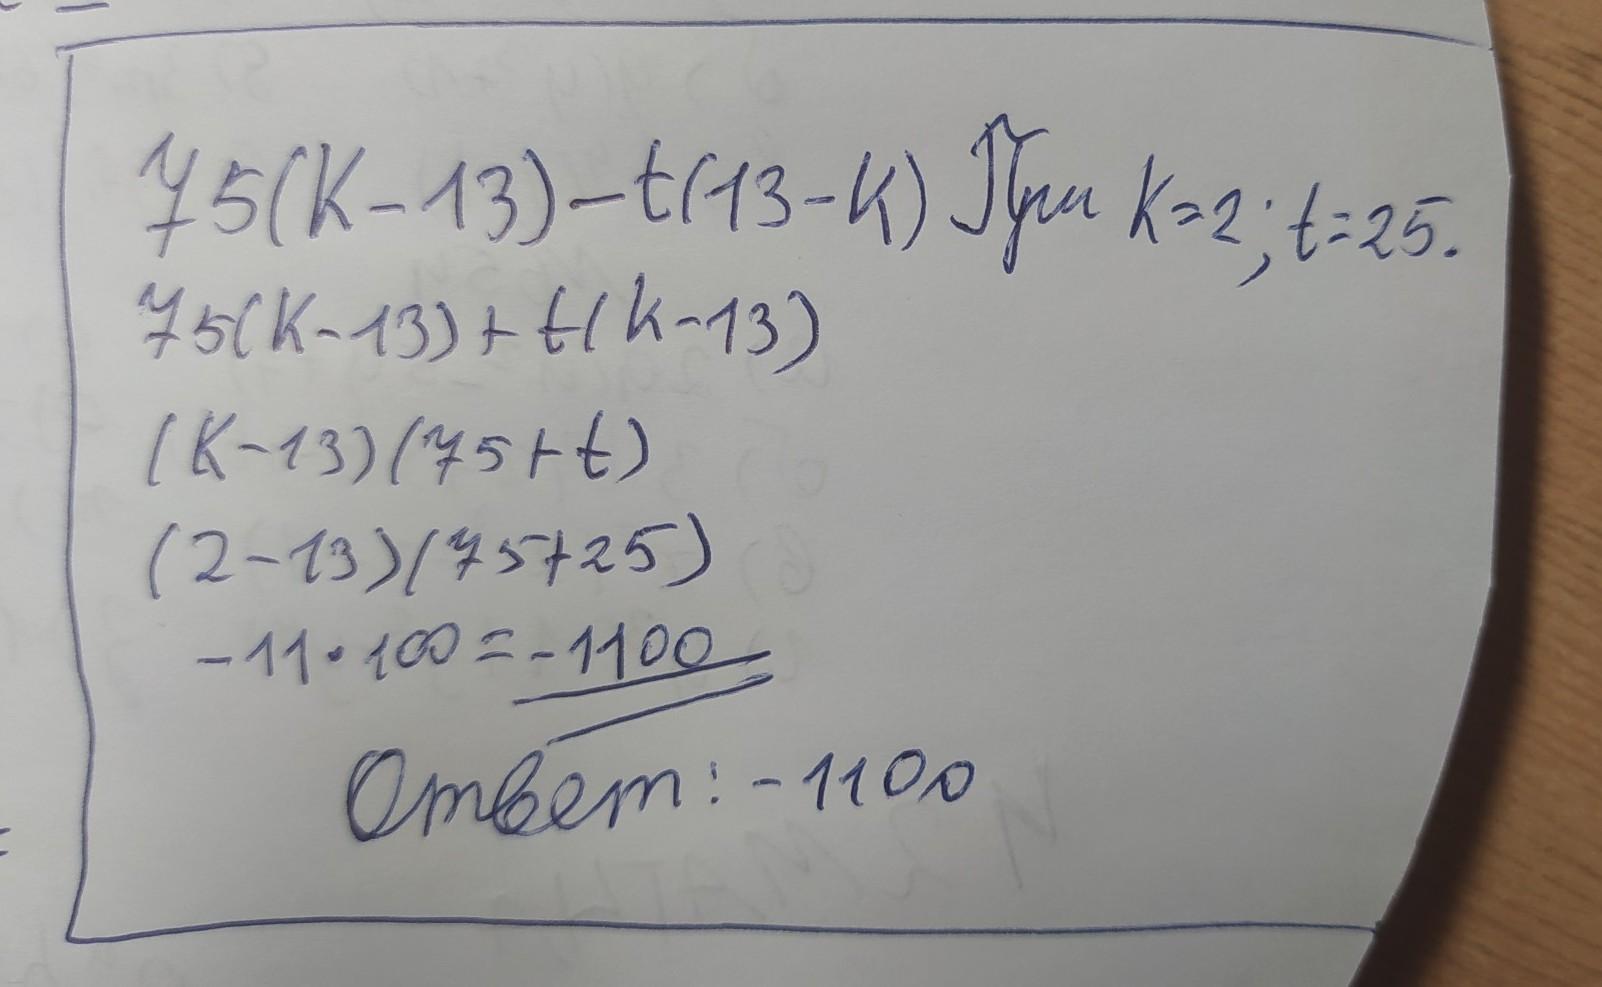 75(K-13)-t(13-K) При K=2; t=25.
75(K-13)+t(k-13)
(K-13)(75+t)
(2-13)(75+25)
-11•100=-1100
Ответ: -1100